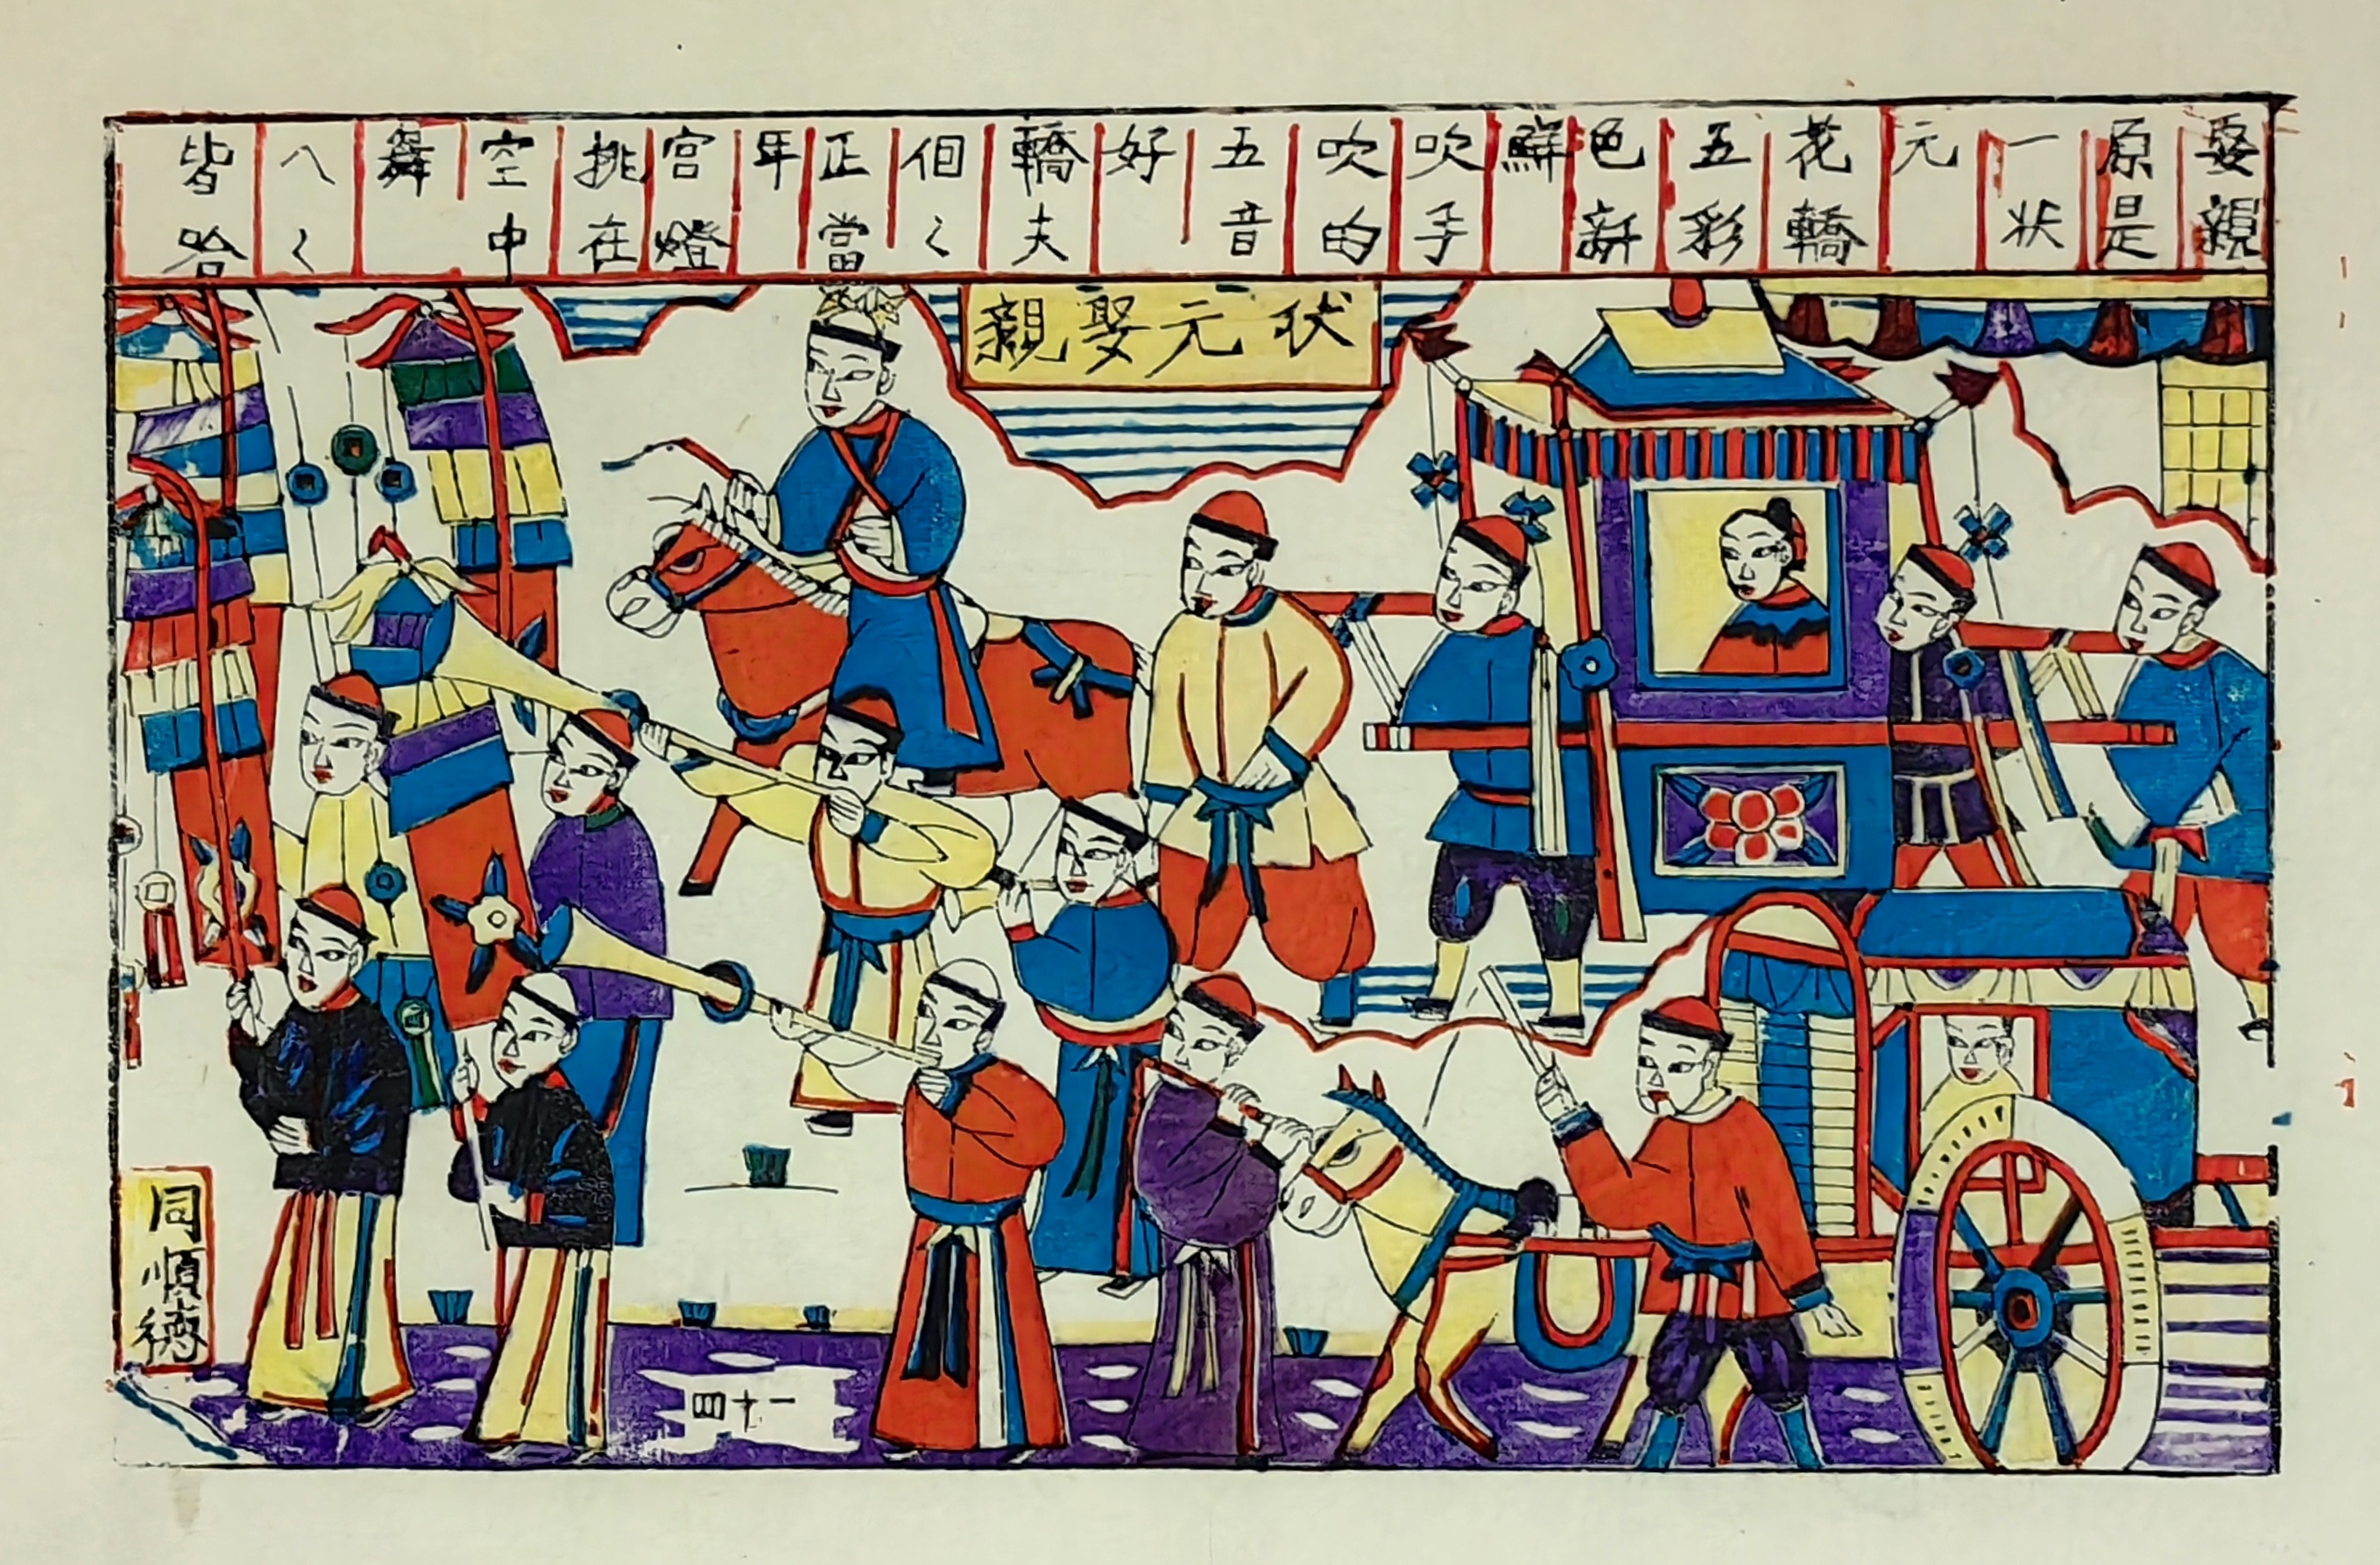 娶親
原是
一状
元
花轎
五彩
色新
鮮
吹手
吹的
五音
好
轎夫
佪〻
正當
年
宫燈
挑在
空中
舞
八〻
皆哈
状元娶親
同順德
四十一